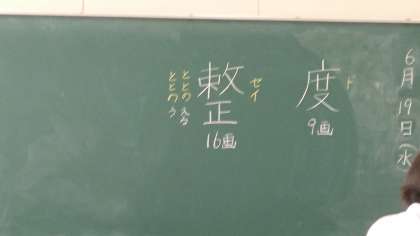 6月19日(水)
ド
度
9画
セイ
整
16画
ととのえる
ととのう